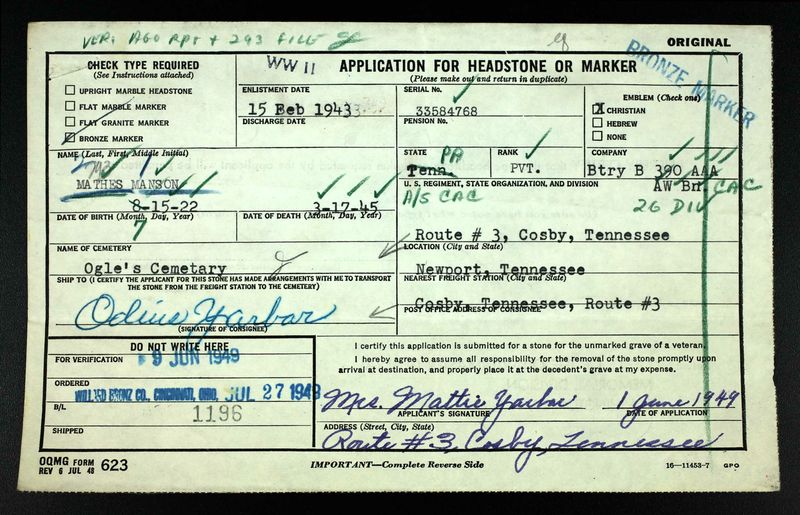 VERI AGO RPT + 293 FILE
ORIGINAL
CHECK TYPE REQUIRED
(See Instructions attached)
UPRIGHT MARBLE HEADSTONE
FLAT MARBLE MARKER
FLAT GRANITE MARKER
BRONZE MARKER
WW II
APPLICATION FOR HEADSTONE OR MARKER
(Please make out and return in duplicate)
BRONZE MARKER
ENLISTMENT DATE
15 Feb 1943
DISCHARGE DATE
SERIAL No.
33584768
PENSION No.
EMBLEM (Check one)
X CHRISTIAN
HEBREW
NONE
NAME (Last, First, Middle Initial)
MATHES MANSON
STATE
Tenn. PA
RANK
PVT.
COMPANY
Btry B 390 AAA
AW Bn. CAC
U. S. REGIMENT, STATE ORGANIZATION, AND DIVISION
A/S CAC
26 DIV
8-15-22
DATE OF BIRTH (Month, Day, Year)
7
3-17-45
DATE OF DEATH (Month, Day, Year)
NAME OF CEMETERY
Ogle's Cemetary
Route # 3, Cosby, Tennessee
LOCATION (City and State)
SHIP TO (I CERTIFY THE APPLICANT FOR THIS STONE HAS MADE ARRANGEMENTS WITH ME TO TRANSPORT
THE STONE FROM THE FREIGHT STATION TO THE CEMETERY)
Newport, Tennessee
NEAREST FREIGHT STATION (City and State)
Odine Yarbar
(SIGNATURE OF CONSIGNEE)
Cosby, Tennessee, Route #3
POST OFFICE ADDRESS OF CONSIGNEE
DO NOT WRITE HERE
FOR VERIFICATION
9 JUN 1949
ORDERED
WILLIED BRONZ CO., CINCINNATI, OHIO, JUL 27 1949
B/L
1196
SHIPPED
I certify this application is submitted for a stone for the unmarked grave of a veteran.
I hereby agree to assume all responsibility for the removal of the stone promptly upon
arrival at destination, and properly place it at the decedent's grave at my expense.
Mrs. Mattie Yarbar 1 June 1949
APPLICANT'S SIGNATURE
DATE OF APPLICATION
ADDRESS (Street, City, State)
Route #3, Cosby, Tennessee
OQMG FORM 623
REV 6 JUL 48
IMPORTANT—Complete Reverse Side
16—11453-7 GPO